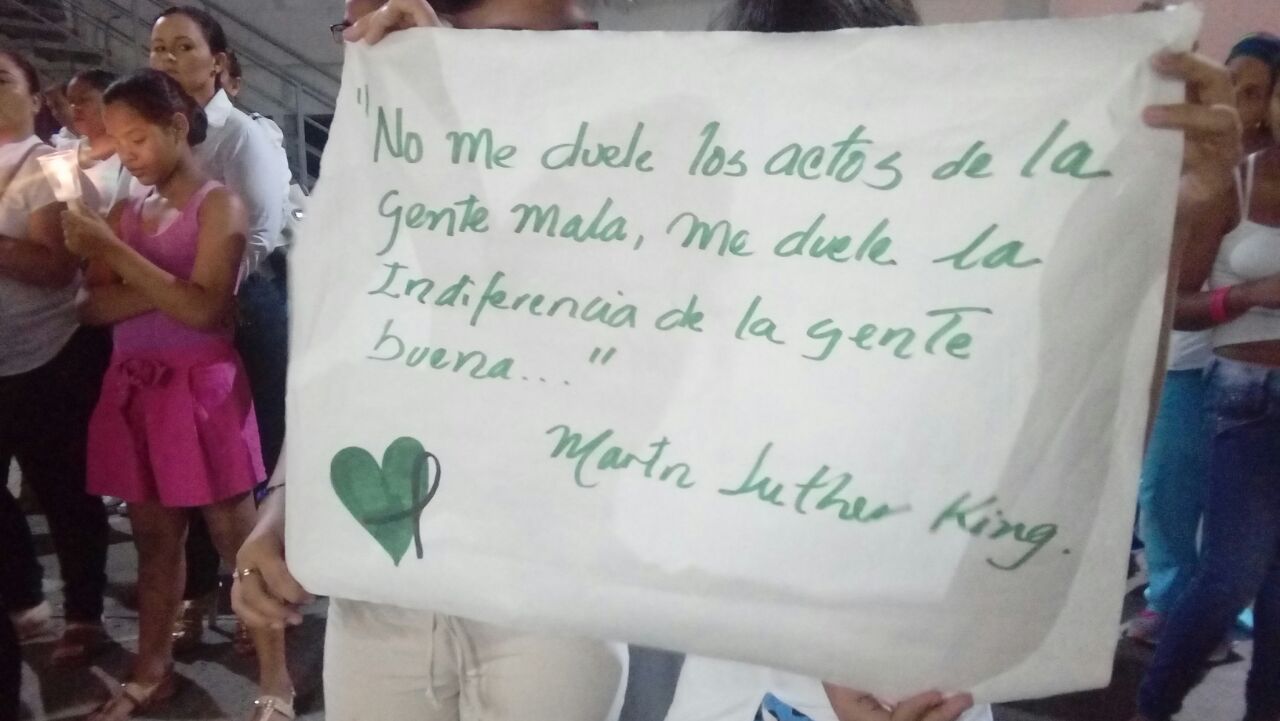 "No me duele los actos de la
gente mala, me duele la
Indiferencia de la gente
buena..."
Martn Luther King.